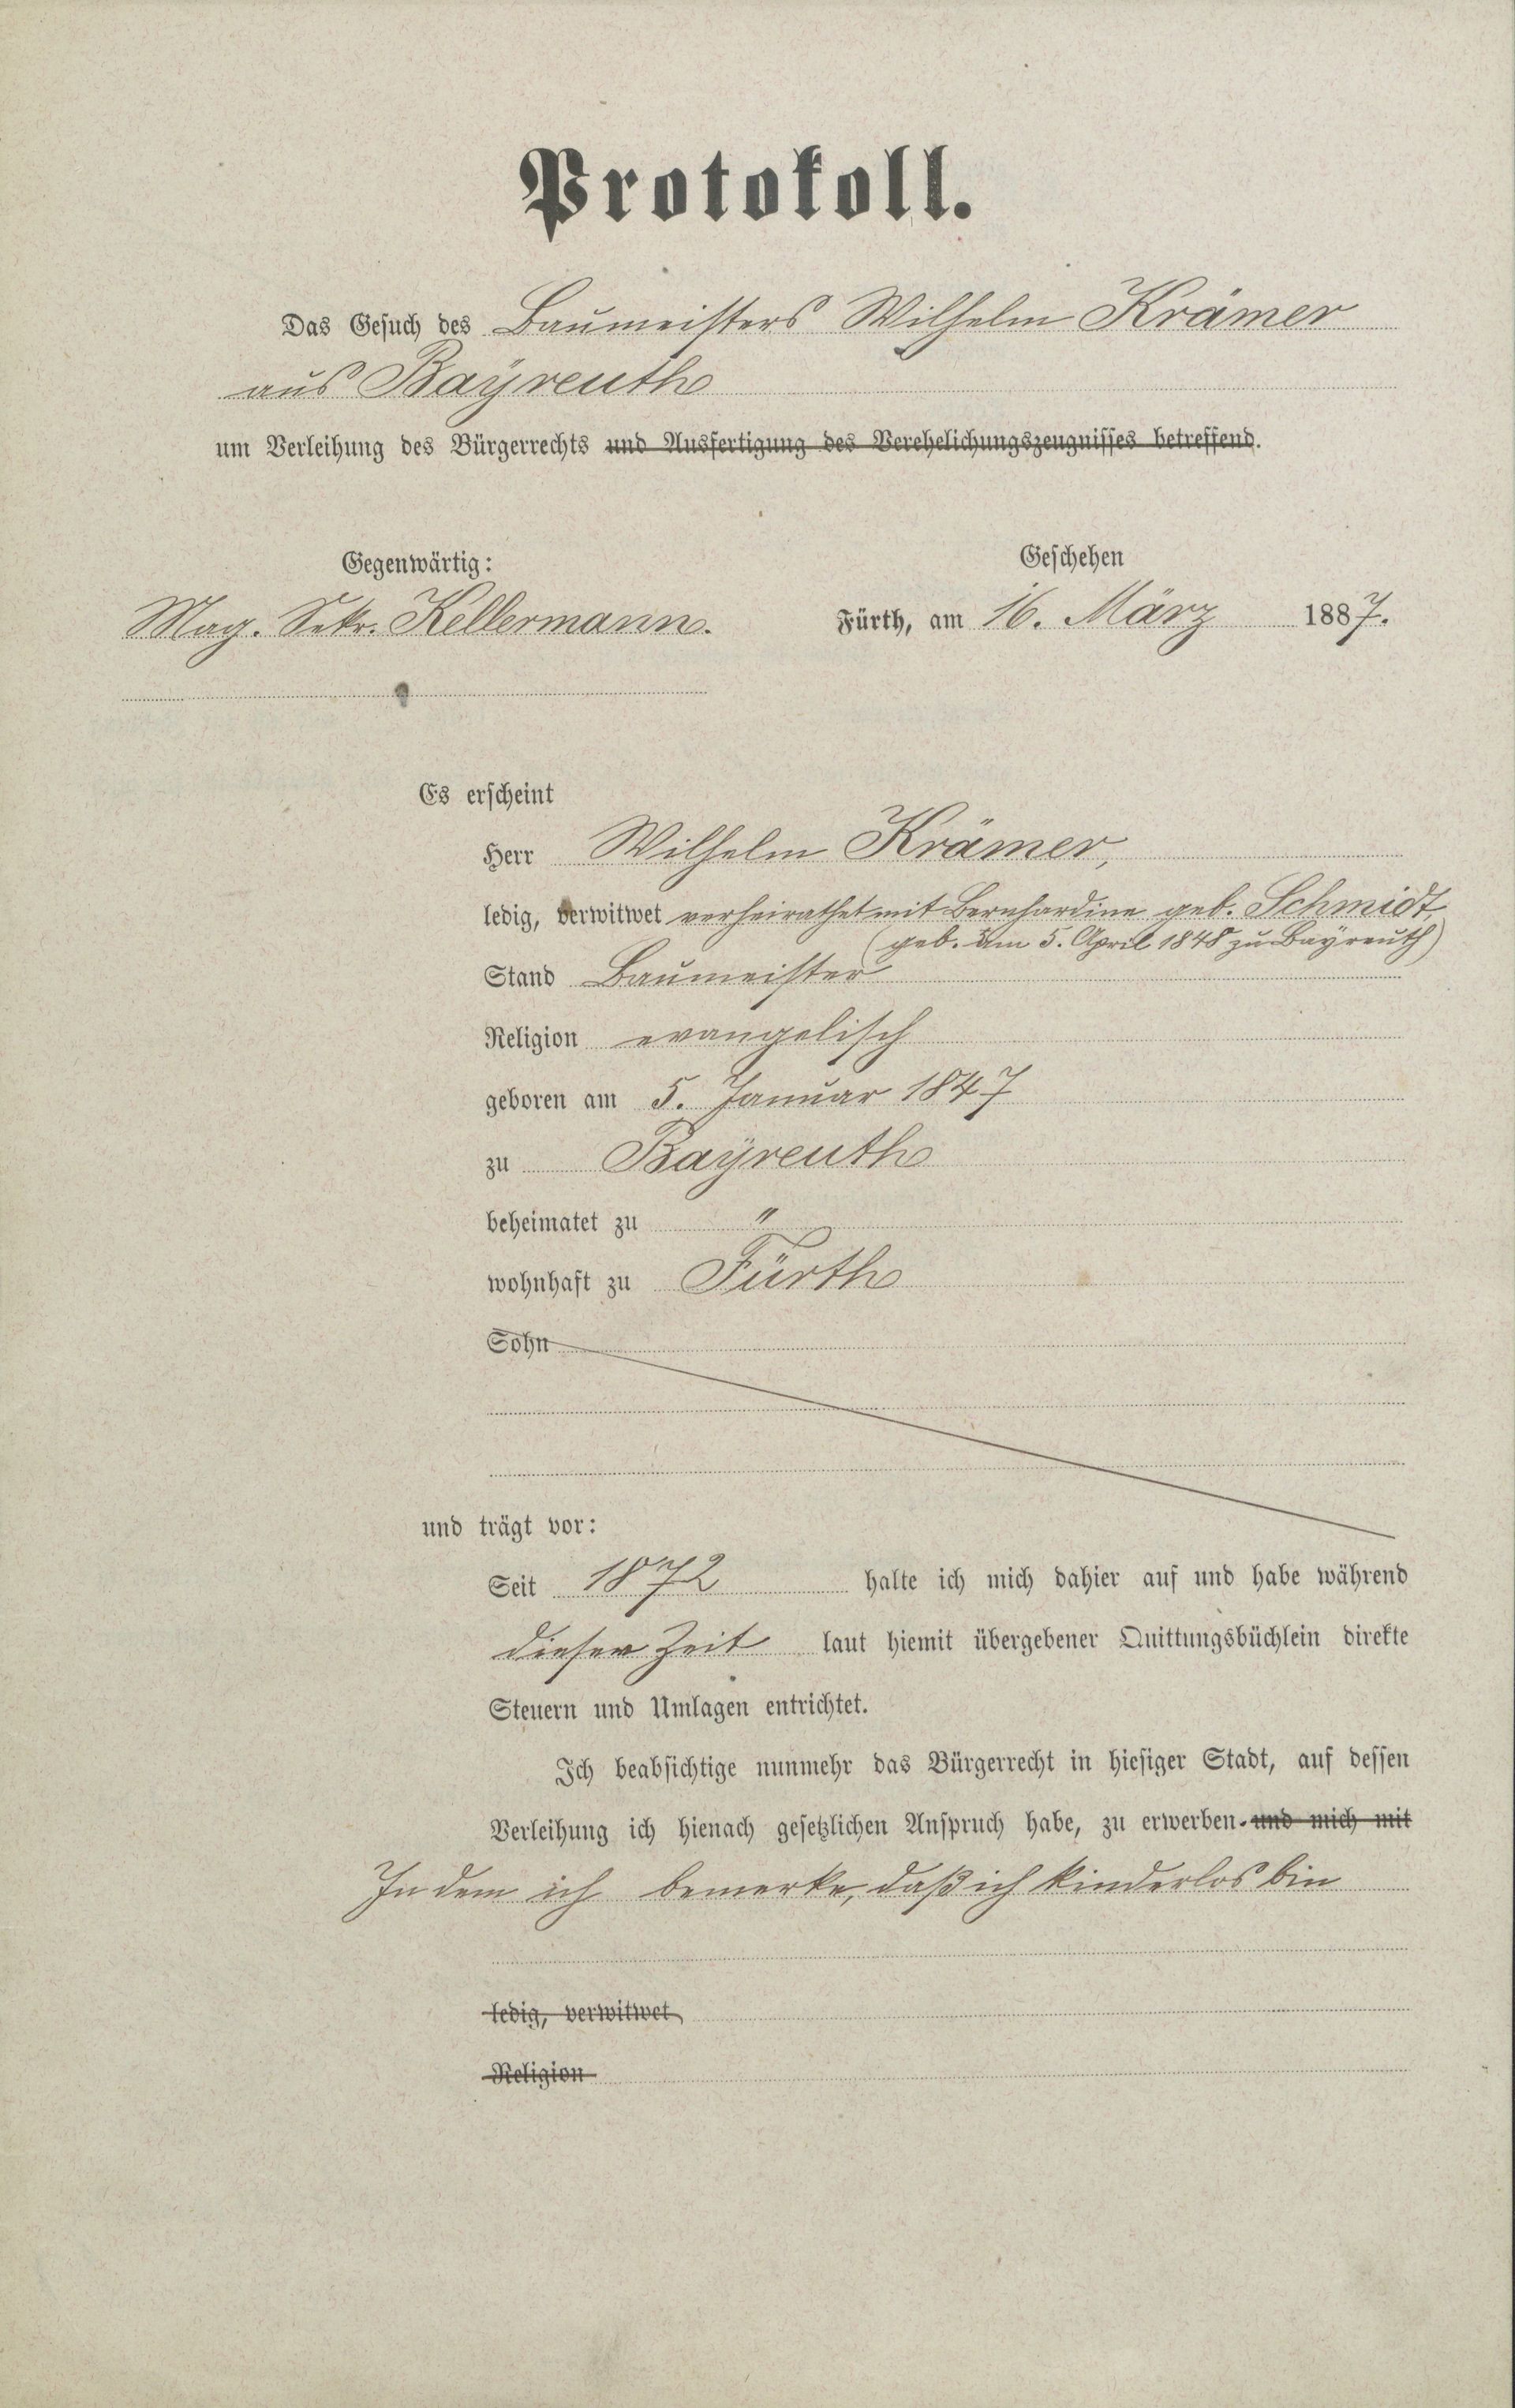 Protokoll.
Das Gesuch des Baumeisters Wilhelm Krämer
aus Bayreuth
um Verleihung des Bürgerrechts und Ausfertigung des Verehelichungszeugnisses betreffend.
Gegenwärtig:
Mag. Sekr. Kellermann.
Geschehen
Fürth, am 16. März 1887.
Es erscheint
Herr Wilhelm Krämer,
ledig, verwitwet verheirathet mit Bernhardine geb. Schmidt,
(geb. am 5. April 1848 zu Bayreuth)
Stand Baumeister
Religion evangelisch
geboren am 5. Januar 1847
zu Bayreuth
beheimatet zu "
wohnhaft zu Fürth
Sohn
und trägt vor:
Seit 1872 halte ich mich dahier auf und habe während
dieser Zeit laut hiemit übergebener Quittungsbüchlein direkte
Steuern und Umlagen entrichtet.
Ich beabsichtige nunmehr das Bürgerrecht in hiesiger Stadt, auf dessen
Verleihung ich hienach gesetzlichen Anspruch habe, zu erwerben und mich mit
In dem ich bemerke, daß ich kinderlos bin
ledig, verwitwet
Religion